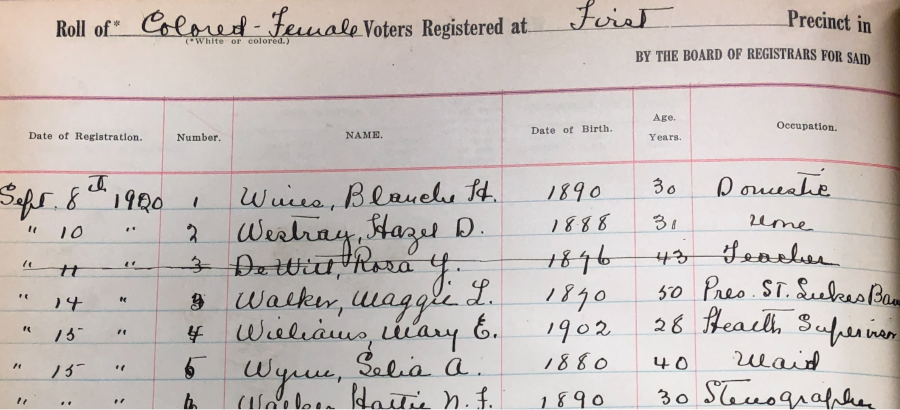 Roll of* Colored - Female Voters Registered at First Precinct in
(*White or colored.)
BY THE BOARD OF REGISTRARS FOR SAID
Date of Registration. Number. NAME. Date of Birth. Age. Years. Occupation.
Sept. 8th 1920 1 Wines, Blanche H. 1890 30 Domestic
" 10 " 2 Westray, Hazel D. 1888 31
" 11 " 3 DeWitt, Rosa Y. 43 Teacher
" 14 " 3 Walker, Maggie L. 50 Pres. St. Lukes
" 15 " 4 Williams, Mary E. 1902 28 Health Supervisor
" 15 " 5 Wynn, Selia A. 1880 40 Maid
" " " 6 Walker, Hattie N. F. 1890 30 Stenographer